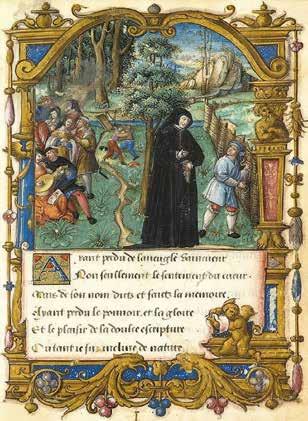 Ayant perdu de laveugle vaincueur
Non seullement le sentement du cueur
Mais de son nom dicts et faicts la memoire
Ayant perdu le pouvoir, et la gloire
Et le plaisir de la doulce escripture
Ou tant ie fuz incline de nature